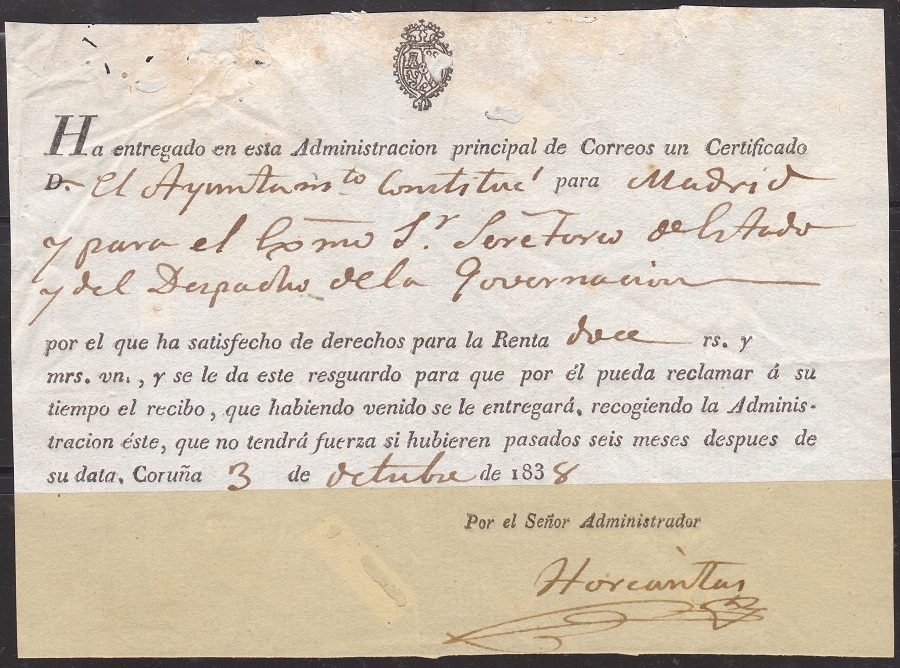 Ha entregado en esta Administracion principal de Correos un Certificado
D. El Ayuntam.to Constituc.l para Madrid
y para el Exmo Sr. Secretario de Estado
y del Despacho de la Governacion
por el que ha satisfecho de derechos para la Renta doce rs. y
mrs. vn., y se le da este resguardo para que por él pueda reclamar á su
tiempo el recibo, que habiendo venido se le entregará, recogiendo la Adminis-
tracion éste, que no tendrá fuerza si hubieren pasados seis meses despues de
su data. Coruña 3 de octubre de 1838
Por el Señor Administrador
Horcasitas